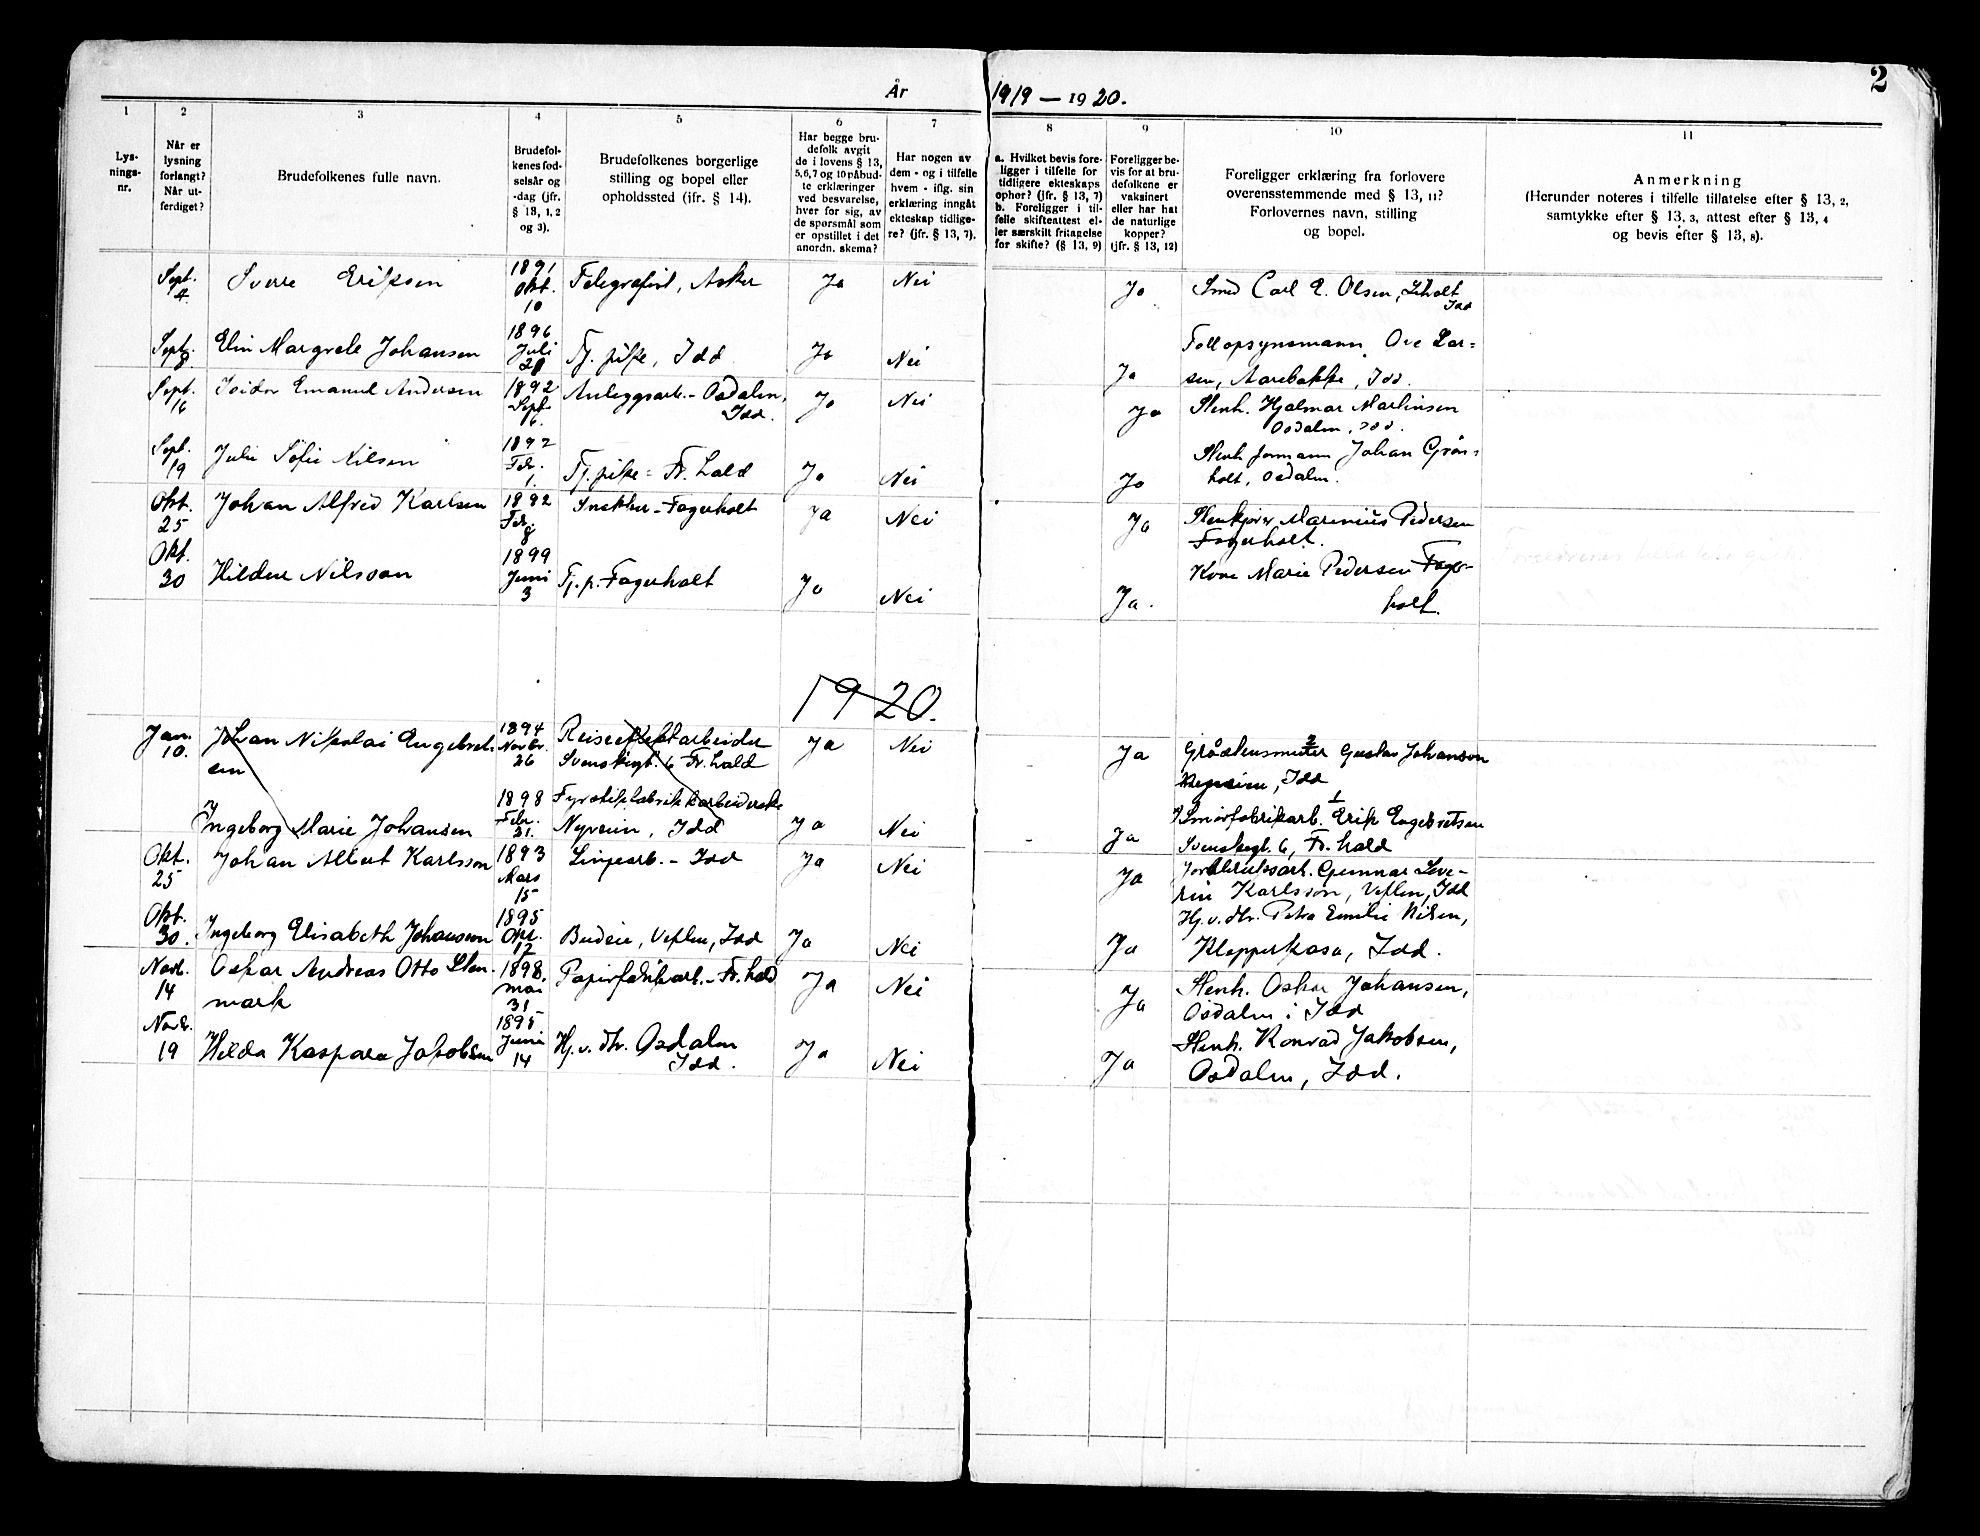 2
År 1919 — 1920.
1 2 3 4 5 6 7 8 9 10 11
Lys-
nings-
nr.
Når er
lysning
forlangt?
Når ut-
ferdiget?
Brudefolkenes fulle navn.
Brudefol-
kenes fød-
selsår og
-dag (jfr.
§ 13, 1, 2
og 3).
Brudefolkenes borgerlige
stilling og bopel eller
opholdssted (jfr. § 14).
Har begge bru-
defolk avgit
de i lovens § 13,
5,6,7 og 10 påbud-
te erklæringer
ved besvarelse,
hver for sig, av
de spørsmål som
er opstillet i det
anordn. skema?
Har nogen av
dem - og i tilfelle
hvem - iflg. sin
erklæring inngått
ekteskap tidlige-
re? (jfr. § 13, 7).
a. Hvilket bevis fore-
ligger i tilfelle for
tidligere ekteskaps
ophør? (jfr. § 13, 7)
b. Foreligger i til-
felle skifteattest el-
ler særskilt fritagelse
for skifte? (§ 13, 9)
Foreligger be-
vis for at bru-
defolkene er
vaksinert
eller har hat
de naturlige
kopper?
(jfr. § 13, 12)
Foreligger erklæring fra forlovere
overensstemmende med § 13, 11?
Forlovernes navn, stilling
og bopel.
Anmerkning
(Herunder noteres i tilfelle tillatelse efter § 13, 2,
samtykke efter § 13, 3, attest efter § 13, 4
og bevis efter § 13, 8).
Sept. 4 Sverre Eriksen 1891 Okt. 10 Telegrafist, Asker Ja Nei Ja Smed Carl E. Olsen,
Idd
Sept. 8. Elin Margrete Johansen 1896 Juli 28 Tj. pike, Idd Ja Nei Ja Tollopsynsmann Ove Lar-
sen, Aarebakke, Idd.
Sept. 16 Isidor Emanuel Andersen 1892 Sept. 16. Anleggsarb. - Osdalen, Idd. Ja Nei Ja Stenh. Hjalmar Martinsen
Osdalen, Idd.
Sept. 19 Julie Sofie Nilsen 1897 Febr. 1. Tj. pike - Fr.hald Ja Nei Ja Stenh. formann Johan Grøn-
holt, Osdalen.
Okt. 25 Johan Alfred Karlsen 1892 Febr. 8 Snekker - Fagerholt Ja Nei Ja Stenkjører Marenius Pedersen
Fagerholt.
Okt. 30 Hildur Nilsson 1899 Juni 3 Tj. p. Fagerholt Ja Nei Ja. Kone Marie Pedersen Fager-
holt.
1920.
Jan. 10. Johan Nikolai Engebret-
sen 1894 Novbr. 26 Reiseeffektarbeider
Svenskegt. 6 Fr.hald Ja Nei Ja Gråstensmester 2 Gustav Johanson
Nyveien, Idd
Ingeborg Marie Johansen 1898 Febr. 21. Fyrstikfabrikkarbeiderske
Nyveien, Idd Ja Nei Ja Smørfabrikarb. 1 Erik Engebretsen
Svenskegt. 6, Fr.hald
Okt. 25 Johan Albert Karlsson 1893 Mars 15 Linjearb. - Idd Ja Nei Ja Jordbruksarb. Gunnar Seve-
rin Karlsson, Veslen, Idd
Okt. 30. Ingeborg Elisabeth Johansson 1895 Okt. 12 Budeie, Veslen, Idd Ja Nei Ja Hj. v. dtr. Petra Emilie Nilsen,
Klepperkasa, Idd.
Novbr. 14 Oskar Andreas Otto Sten-
mark 1898 mai 31 Papirfabrikarb. - Fr.hald Ja Nei Ja Stenh. Oskar Johansen,
Osdalen i Idd
Novbr. 19 Hilda Kaspara Jakobsen 1895 Juni 14 Hj. v. dtr. Osdalen
Idd. Ja Nei Ja Stenh. Konrad Jakobsen,
Osdalen, Idd.